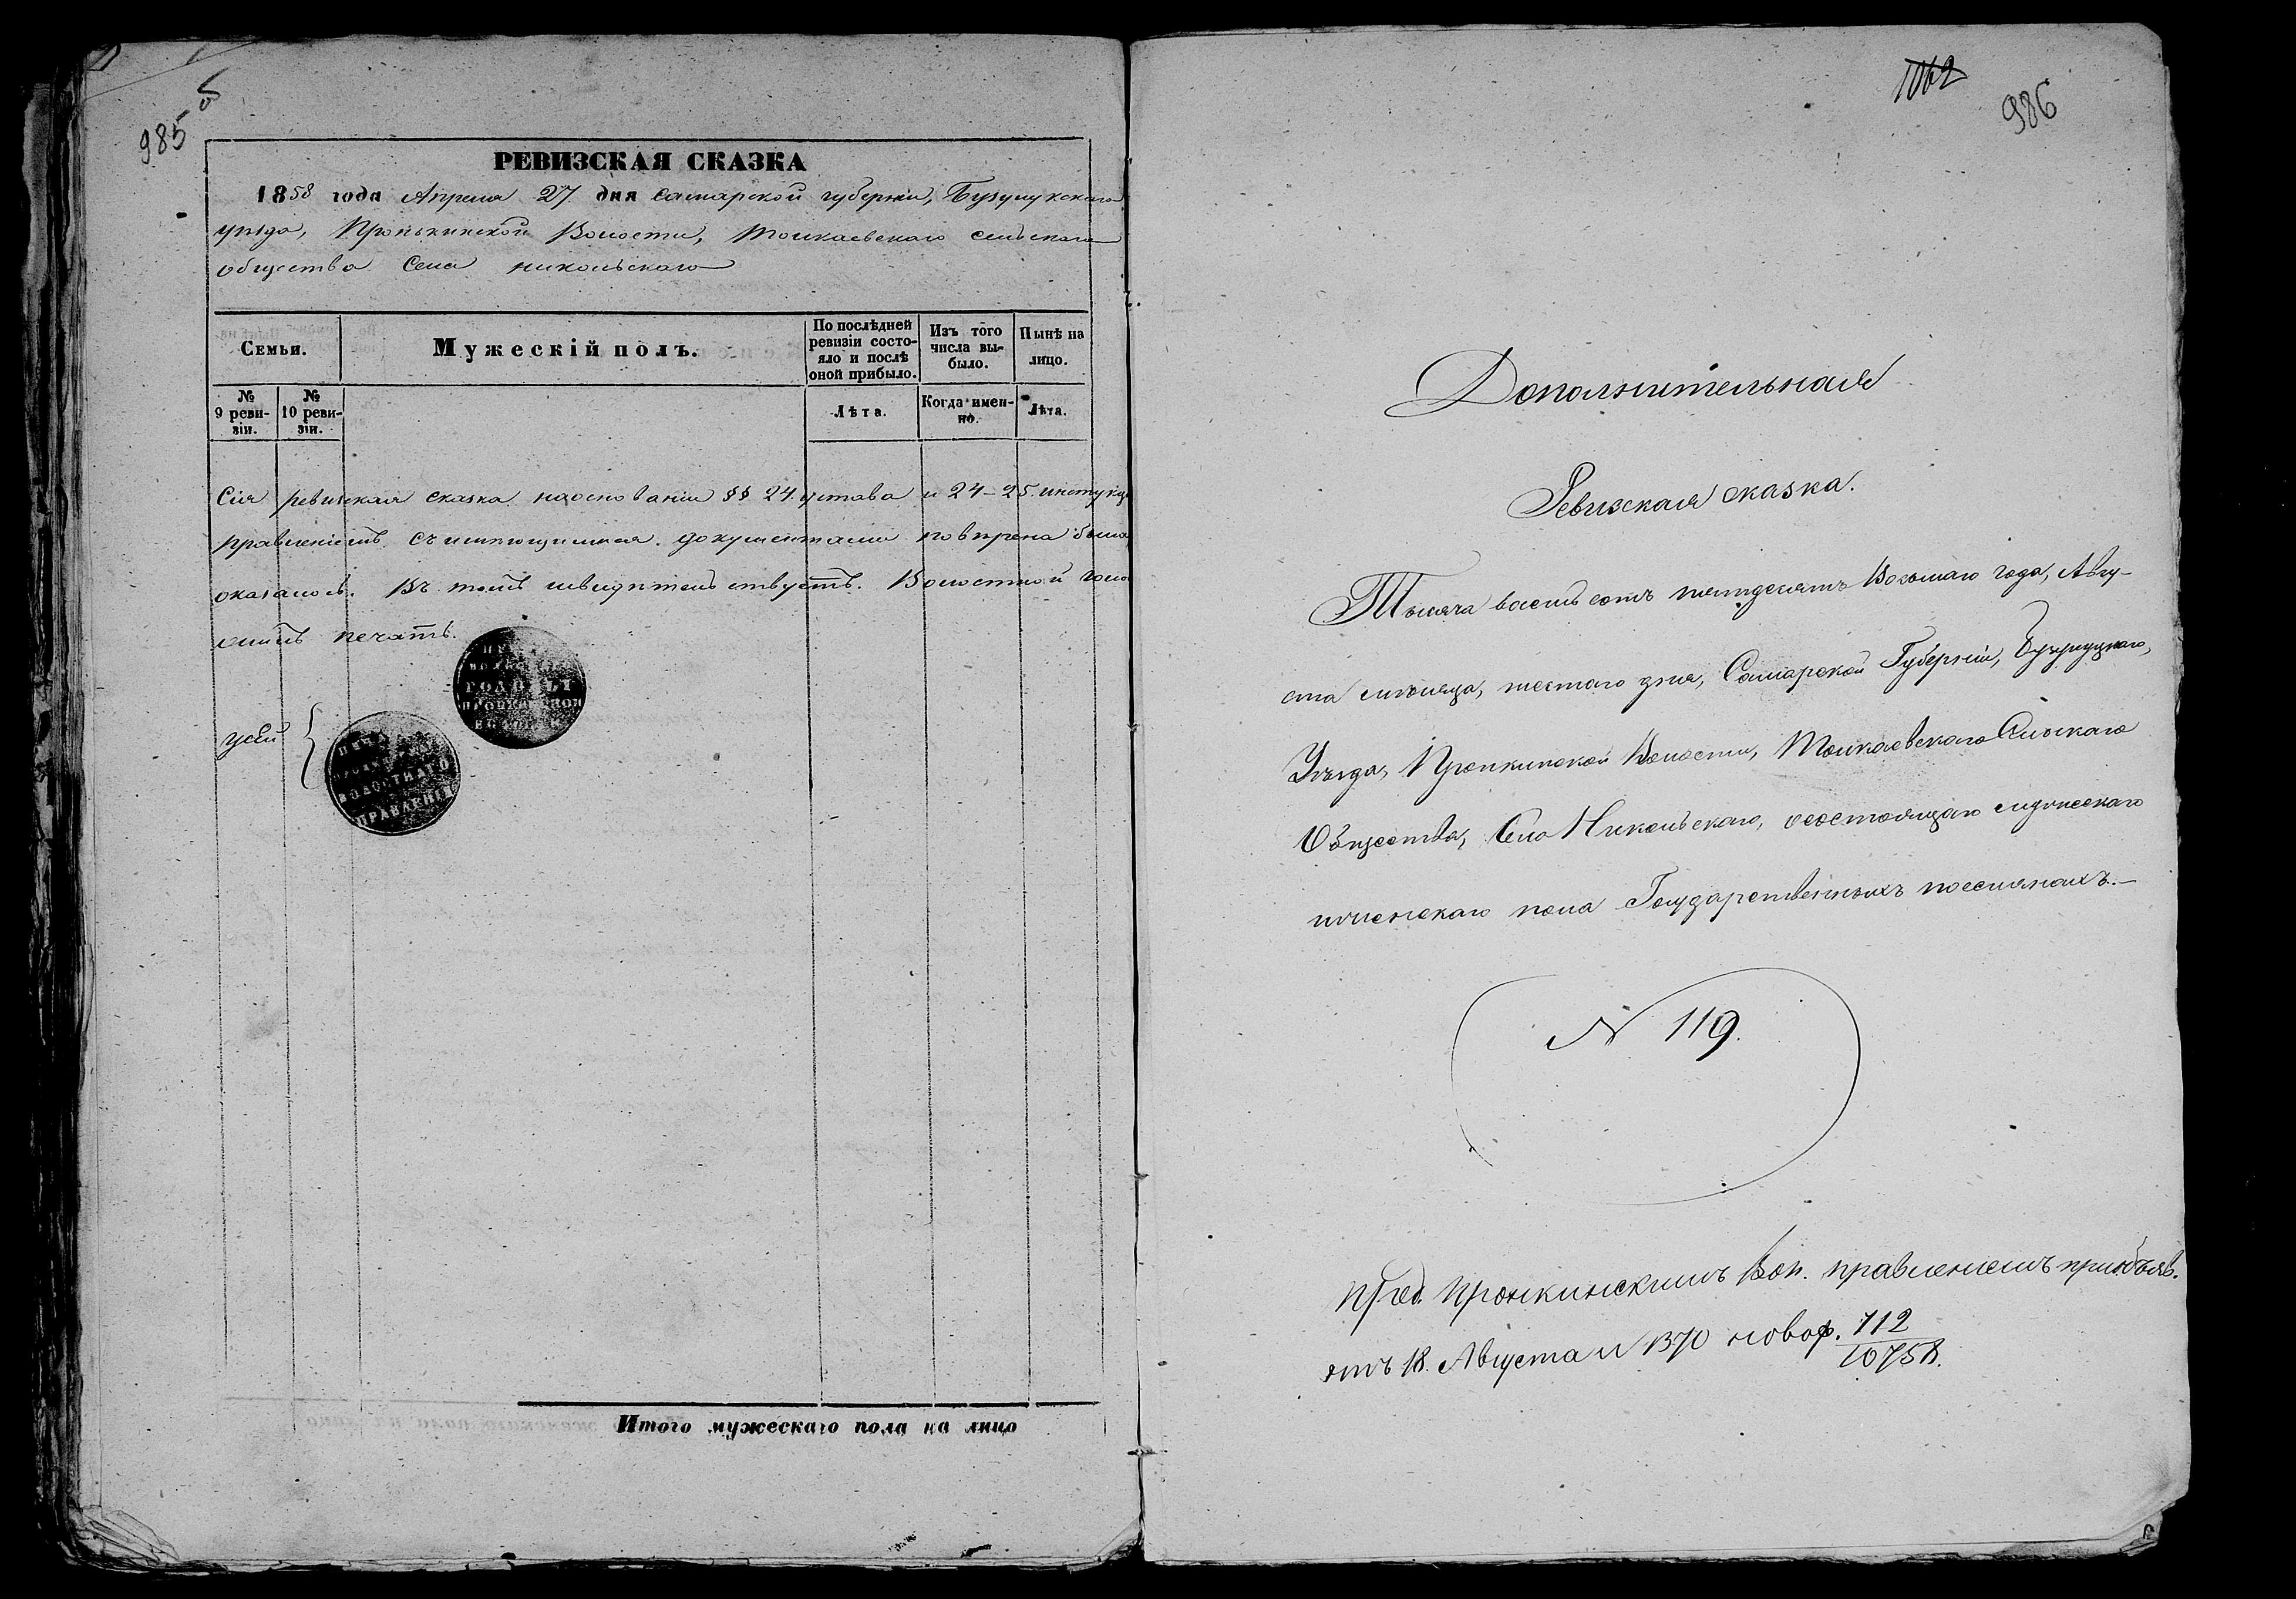 985 об
РЕВИЗСКАЯ СКАЗКА
1858 года Апреля 27 дня Самарской губернии, Бузулукскаго
уѣзда, Пронькинской Волости, Токаевскаго сельскаго
общества Села Никольскаго
Семьи.
Мужескій полъ.
По послѣдней ревизіи состояло и послѣ оной прибыло.
Изъ того числа выбыло.
Нынѣ на лицо.
№ 9 ревизіи.
№ 10 ревизіи.
Лѣта.
Когда именно.
Лѣта.
Сія ревизская сказка на основаніи §§ 24. устава и 24-25. инстукц
правленіемъ съ имеющимися документами поверена была
оказалось. Въ томъ свидѣтельствуетъ. Волостной голо
печать.
ГОЛОВЫ
ПРОНКИНСКОЙ
ВОЛОСТНАГО
ПРАВЛЕНІЯ
Итого мужескаго пола на лицо
1062
986
Дополнительная
Ревизская сказка.
Тысяча восемь сотъ пятдесятъ Восьмаго года, Авгу-
ста месяца, шестаго дня, Самарской Губерніи, Бузулуцкаго,
Уѣзда, Пронкинской Волости, Токаевскаго Сельскаго
Общества, Села Никольскаго, о состоящихъ мужескаго
и женскаго пола Государственныхъ поселянахъ.-
N 119.
Пред. Пронкинскимъ Вол. правленіемъ при объяв.
отъ 18. Августа N 1370 112
10758.